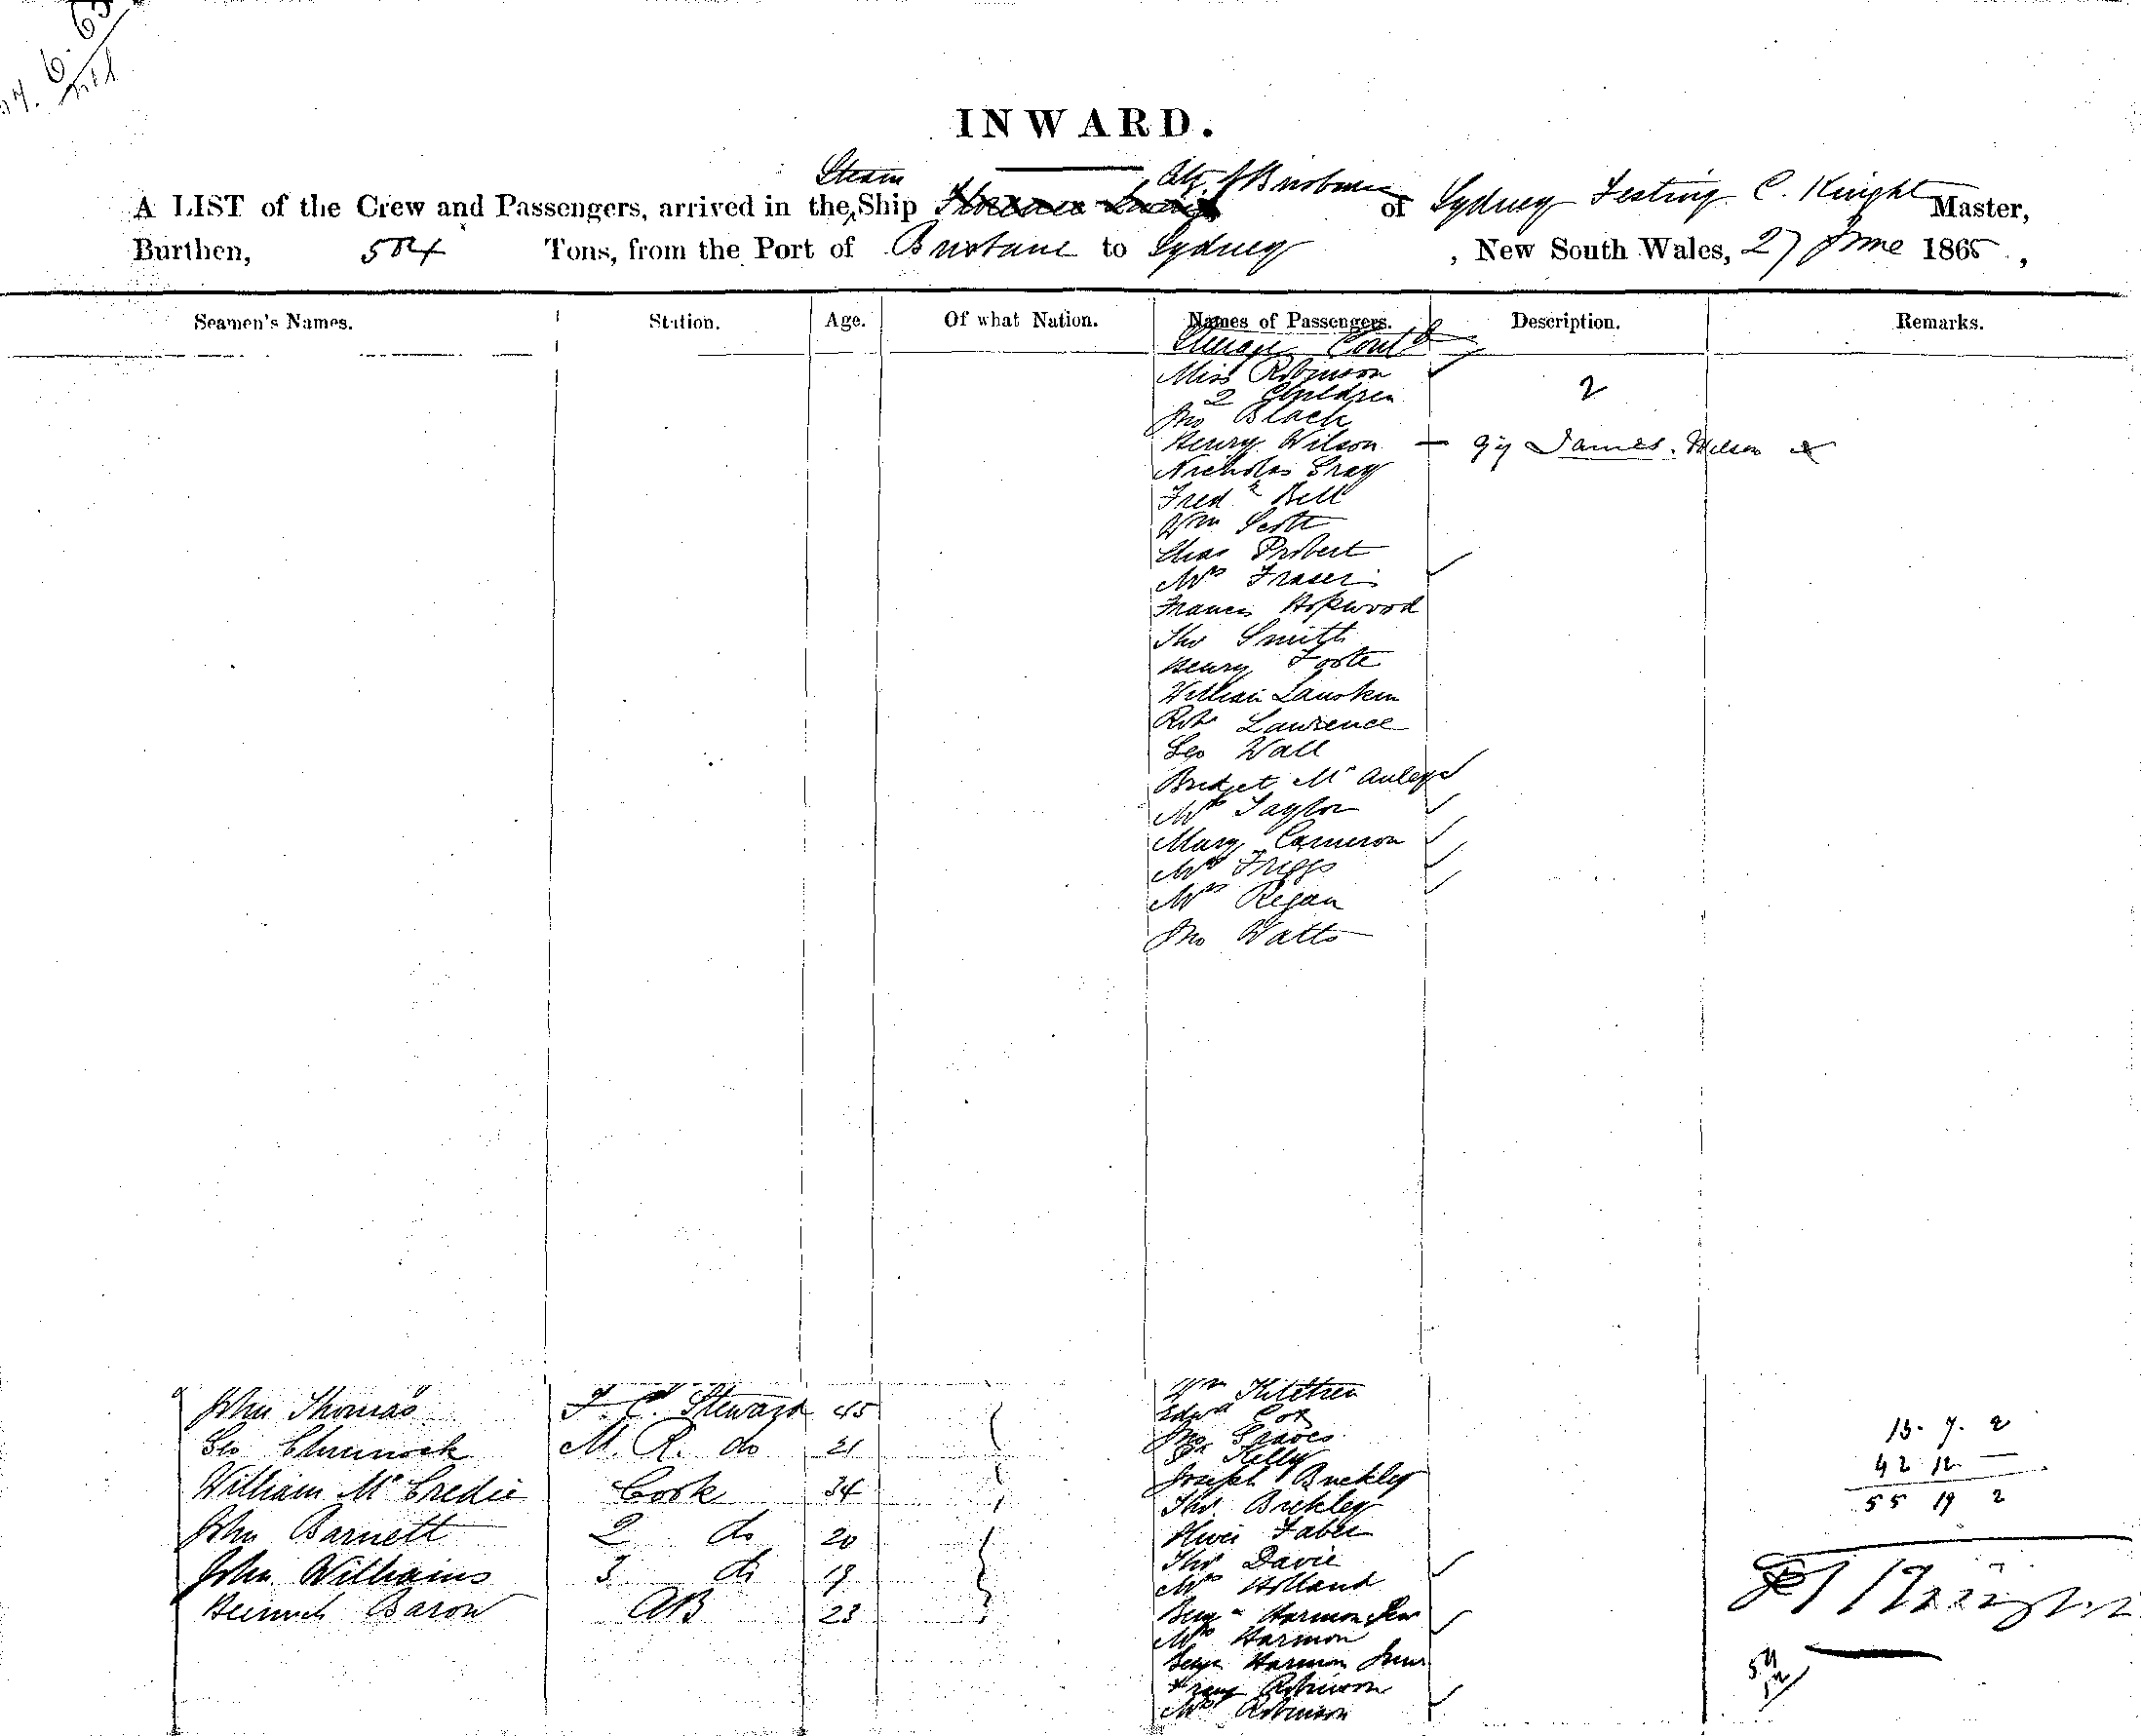 INWARD.
Steam City of Brisbane
A LIST of the Crew and Passengers, arrived in the Ship of Sydney Festing C. Knight Master,
Burthen, 504 Tons, from the Port of Brisbane to Sydney, New South Wales, 27 June 1865,
Seamen's Names. Station. Age. Of what Nation. Names of Passengers. Description. Remarks.
Steerage Contd
Miss Robinson
2 Children 2
Jno Black
Henry Wilson — James. Wilson
Nicholas Gray
Fredk Bell
Wm Scott
Chas Probert
Mrs Fraser
Francis Hopwood
Thos Smith
Henry Foote
William
Robt Lawrence
Geo Wall
Bridget McAuley
Mrs Taylor
Mary Cameron
Mrs Triggs
Mrs Regan
Jno Watts
Wm Kitchen
John Thomas F. C. Steward 45 Edwd Cox
Jno Graves
Geo Chinnock M. R. do 21 Kelly
Joseph Buckley
William McCredie Cook 34 Thos Buckley
John Barnett 2 do 20 Oliver Faber
Thos Davie
John Williams 3 do 19 Mrs Holland
Heinrich Baron AB 23 Benj Harmon Senr
Mrs Harmon
Benjn Harmon Junr
Robinson
Mrs Robinson
13. 7. 2
42 12 —
55 19 2